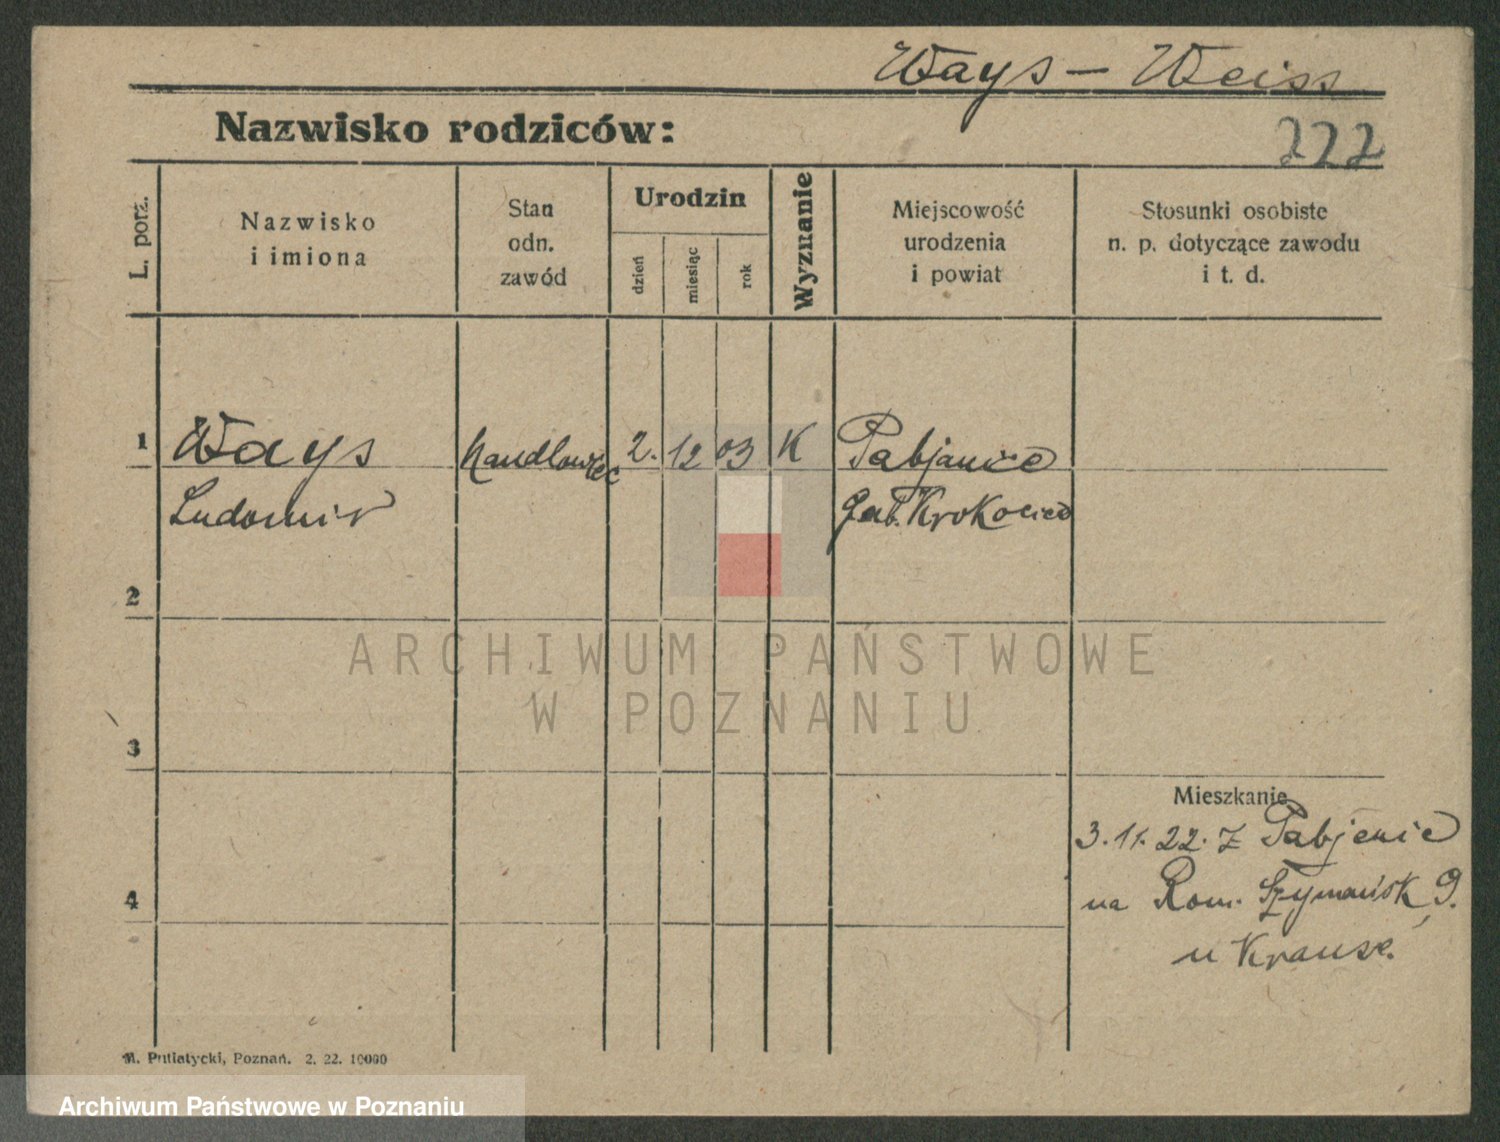 Ways – Weiss
Nazwisko rodziców:
222
L. porz.
Nazwisko
i imiona
Stan
odn.
zawód
Urodzin
dzień
miesiąc
rok
Wyznanie
Miejscowość
urodzenia
i powiat
Stosunki osobiste
n. p. dotyczące zawodu
i t. d.
1 Ways Handlowiec 2. 12 03 K Pabjanice
Ludomir
2
3
Mieszkanie
3. 11. 22. z Pabjenic
na Rom. Szymańsk 9.
u Krause.
4
M. Putiatycki, Poznań. 2. 22. 10000
ARCHIWUM PAŃSTWOWE
W POZNANIU
Archiwum Państwowe w Poznaniu